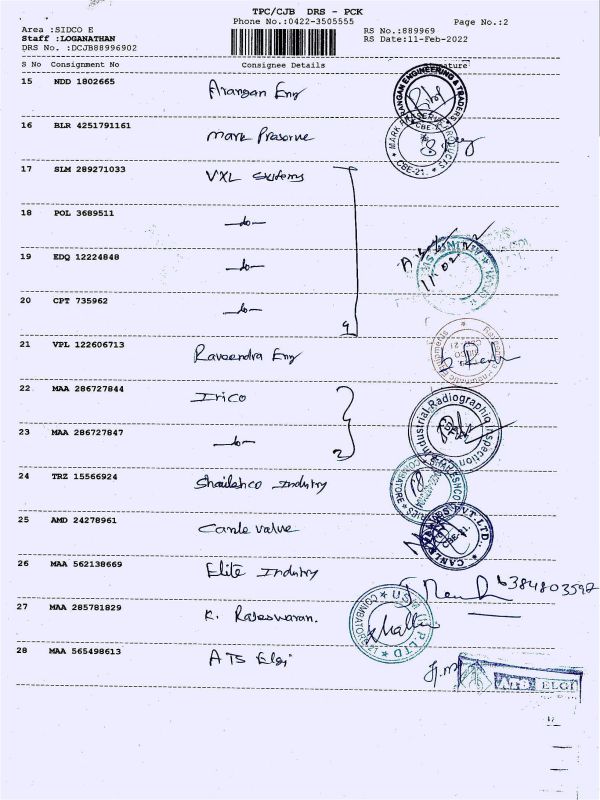 TPC/CJB DRS - PCK
Phone No.:0422-3505555 Page No.:2
Area :SIDCO E RS No.:889969
Staff :LOGANATHAN RS Date:11-Feb-2022
DRS No. :DCJB88996902
S No Consignment No Consignee Details Signature
15 NDD 1802665 Arangan Eng
16 BLR 4251791161 Mark Preserve
17 SLM 289271033 VXL Systems
18 POL 3689511 -do-
19 EDQ 12224848 -do-
20 CPT 735962 -do-
4
21 VPL 122606713 Raveendra Eng
22 MAA 286727844 Irico
23 MAA 286727847 -do-
2
24 TRZ 15566924 Shaileshco Industry
25 AMD 24278961 Canle valve
26 MAA 562138669 Elite Industry
6384803592
27 MAA 285781829 K. Rajeswaran.
28 MAA 565498613 ATS Elgi
ARANGAN ENGINEERING & TRADERS
CBE-21.
11.02.22
Industrial Radiographiq Inspection
COIMBATORE
PVT.LTD
COIMBATORE
P LTD
ATS ELGI